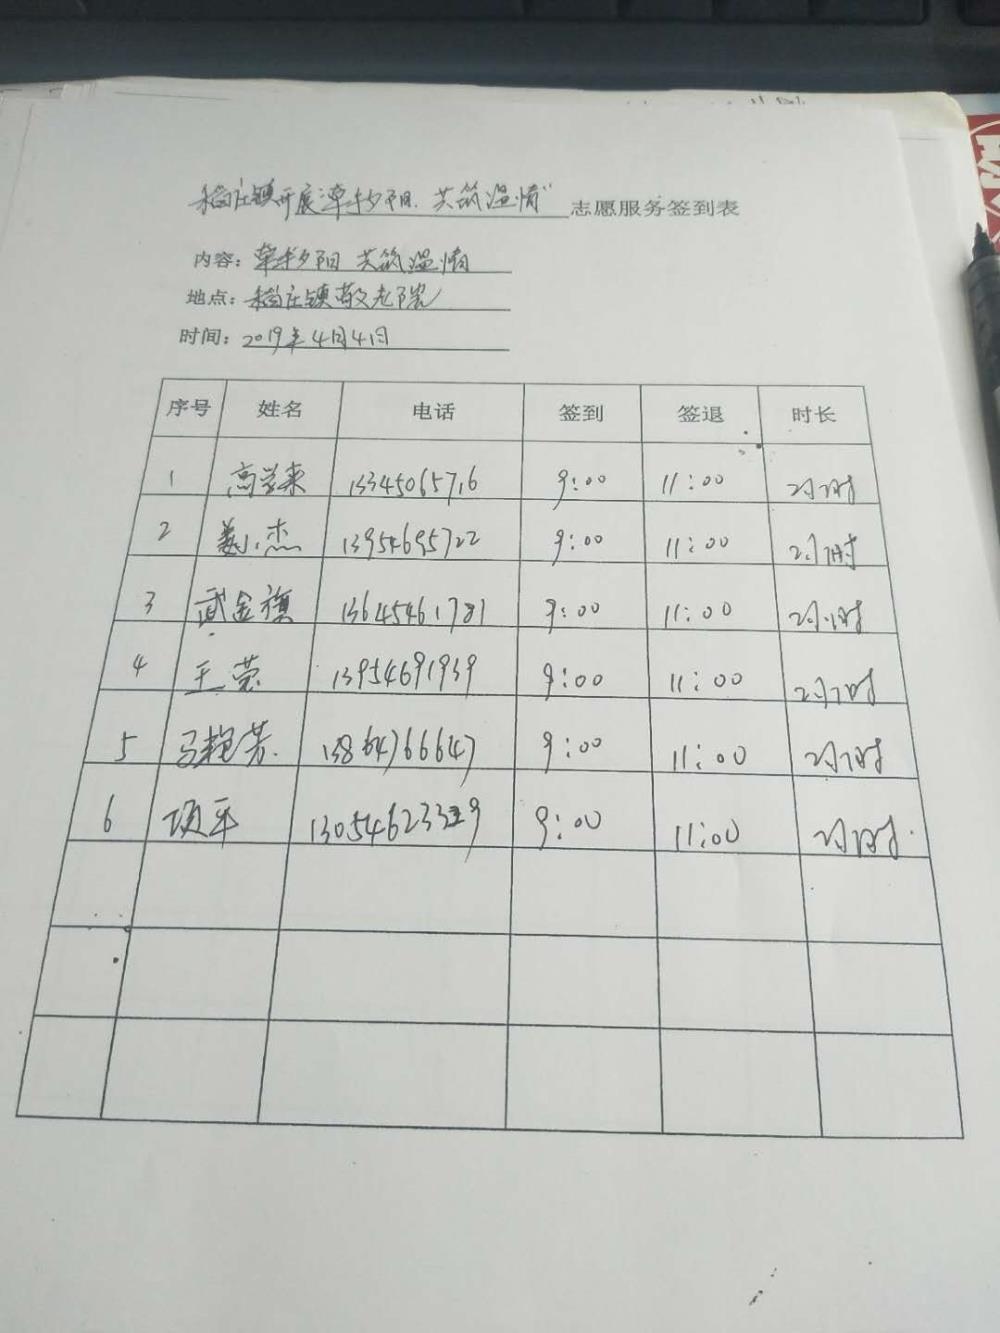 稻庄镇开展"牵手夕阳.共筑温情"志愿服务签到表
内容:牵手夕阳 共筑温情
地点:稻庄镇敬老院
时间:2019年4月4日
序号 姓名 电话 签到 签退 时长
1 高学来 13345065716 9:00 11:00 2小时
2 杰 13954695722 9:00 11:00 2小时
3 武金旗 13645461781 9:00 11:00 2小时
4 王莹 13954691939 9:00 11:00 2小时
5 马艳芳 13864766647 9:00 11:00 2小时
6 项平 9:00 11:00 2小时